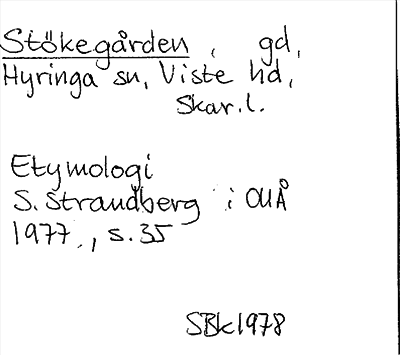 Stökegården, gd,
Hyringa sn, Viste hd,
Skar.l.
Etymologi
S. Strandberg i OUÅ
1977, s. 35
SBk1978